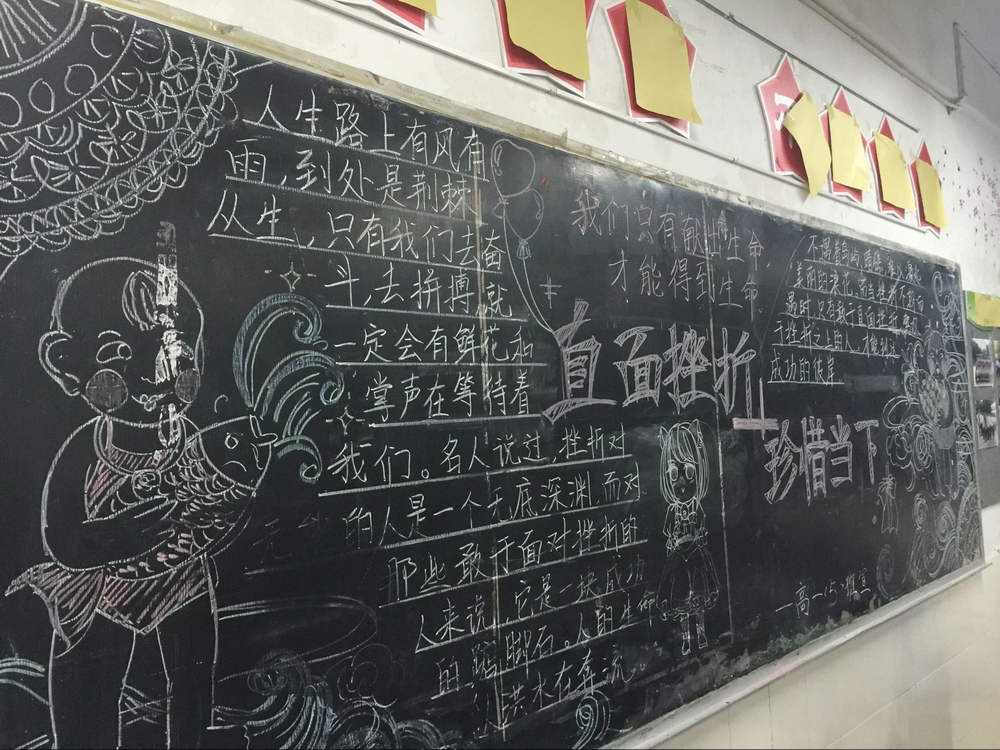 人生路上有风有
雨，到处是荆棘
从生，只有我们去奋
斗，去拼搏，就
一定会有鲜花和
掌声在等待着
我们。名人说过，挫折对
无能的人是一个无底深渊，而对
那些敢于面对挫折的
人来说，它是一块成功
的踏脚石。人的生命
似洪水在奔流
我们只有献出生命，
才能得到生命
直面挫折
珍惜当下
美丽的浪花，
成功的彼岸